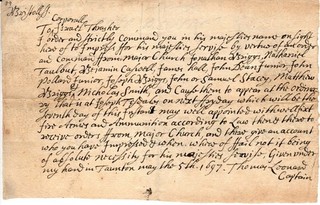 Bristoll ss:
Corporall
Israel Thrasher
I order and strictly Command you in his majesties name on sight
here of to Impress for his majesties servis by vertue of an order
and Comman from major Church Jonathan Briggs, Nathaniel
Taulbut, Benjamin Caswell, James Hall, John
Pollard Junior, Joseph Briggs, John or Samuel Stacey, Matthew
Briggs, Micalas Smith, and Cause them to appear at the ordena
ry that is at Joseph Tisdals on next fryday which will be the
Seventh day of this Instant may well appointed with well fixt
fire Armes and Ammunition according to Law then & there to
receive orders from Major Church, and there give an account
who you have Impressed & when. where of fail not it being
of absolute necessity for his majesties servise, Given under
my hand in Taunton may the 5th. 1697. Thomas Leonard
Captain